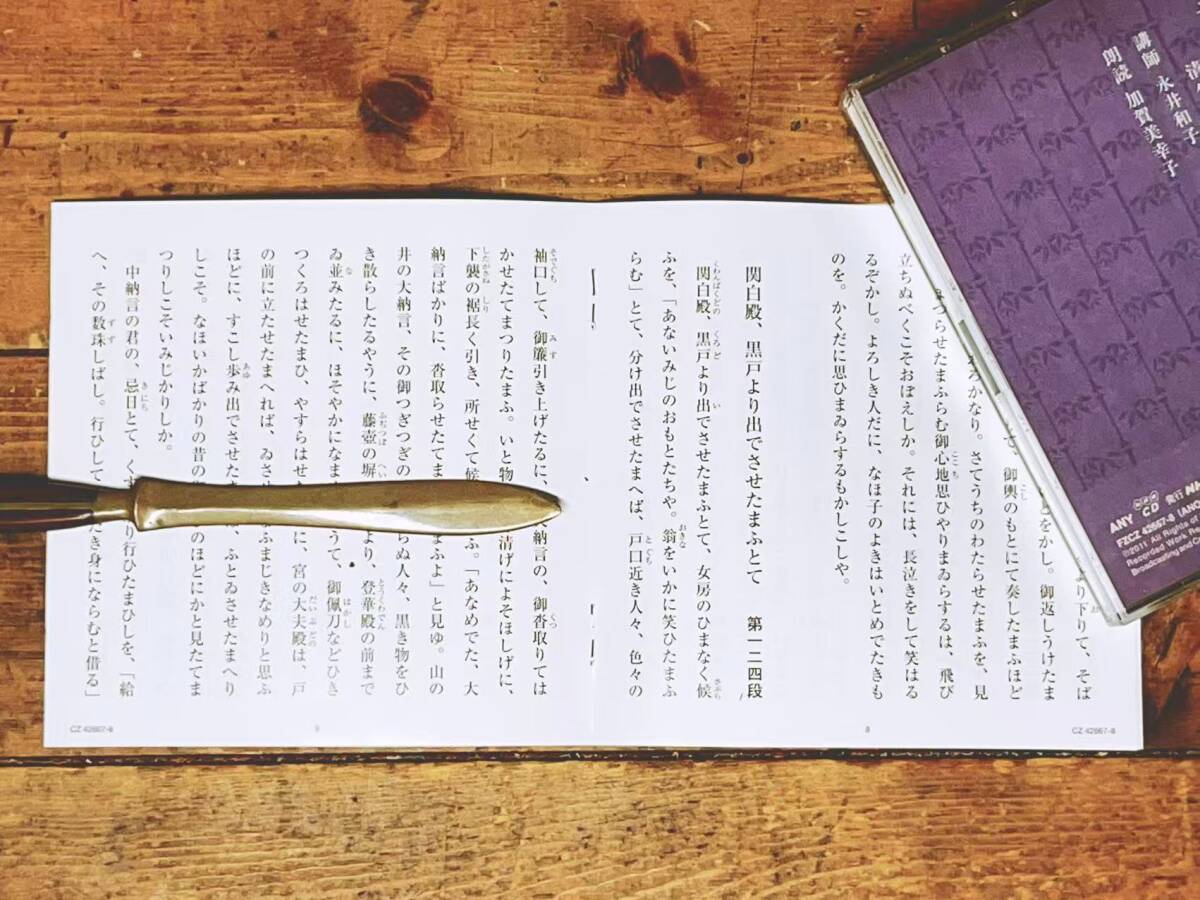 より下りて、そば
どをかし。御返しうけたま
て、御輿のもとにて奏したまふほど
ろかなり。さてうちのわたらせたまふを、見
つらせたまふらむ御心地思ひやりまゐらするは、飛び
立ちぬべくこそおぼえしか。それには、長泣きをして笑はる
るぞかし。よろしき人だに、なほ子のよきはいとめでたきも
のを。かくだに思ひまゐらするもかしこしや。
関白殿、黒戸より出でさせたまふとて 第一二四段
関白殿、黒戸より出でさせたまふとて、女房のひまなく候
くわんぱくどの くろど い さぶら
ふを、「あないみじのおもとたちや。翁をいかに笑ひたまふ
おきな
らむ」とて、分け出でさせたまへば、戸口近き人々、色々の
とぐち
袖口して、御簾引き上げたるに、
そでぐち みす
大納言の、御沓取りては
くつ
かせたてまつりたまふ。いと物
清げによそほしげに、
下襲の裾長く引き、所せくて候
ふ。「あなめでた、大
したがさね しり
納言ばかりに、沓取らせたてま
まふよ」と見ゆ。山の
井の大納言、その御つぎつぎの
らぬ人々、黒き物をひ
き散らしたるやうに、藤壺の塀
より、登華殿の前まで
ふぢつぼ へい とうくわでん
ゐ並みたるに、ほそやかになま
うて、御佩刀などひき
な はかし
つくろはせたまひ、やすらはせた
に、宮の大夫殿は、戸
だいぶどの
の前に立たせたまへれば、ゐさせ
ふまじきなめりと思ふ
ほどに、すこし歩み出でさせたま
、ふとゐさせたまへり
あゆ
しこそ。なほいかばかりの昔の御
のほどにかと見たてま
つりしこそいみじかりしか。
中納言の君の、忌日とて、くす
り行ひたまひしを、「給
きにち
へ、その数珠しばし。行ひして
たき身にならむと借る」
ずず
CZ 42667-8
9
8
CZ 42667-8
講師 永井和子
朗読 加賀美幸子
ANY CD 発行
FZCZ 42667-8